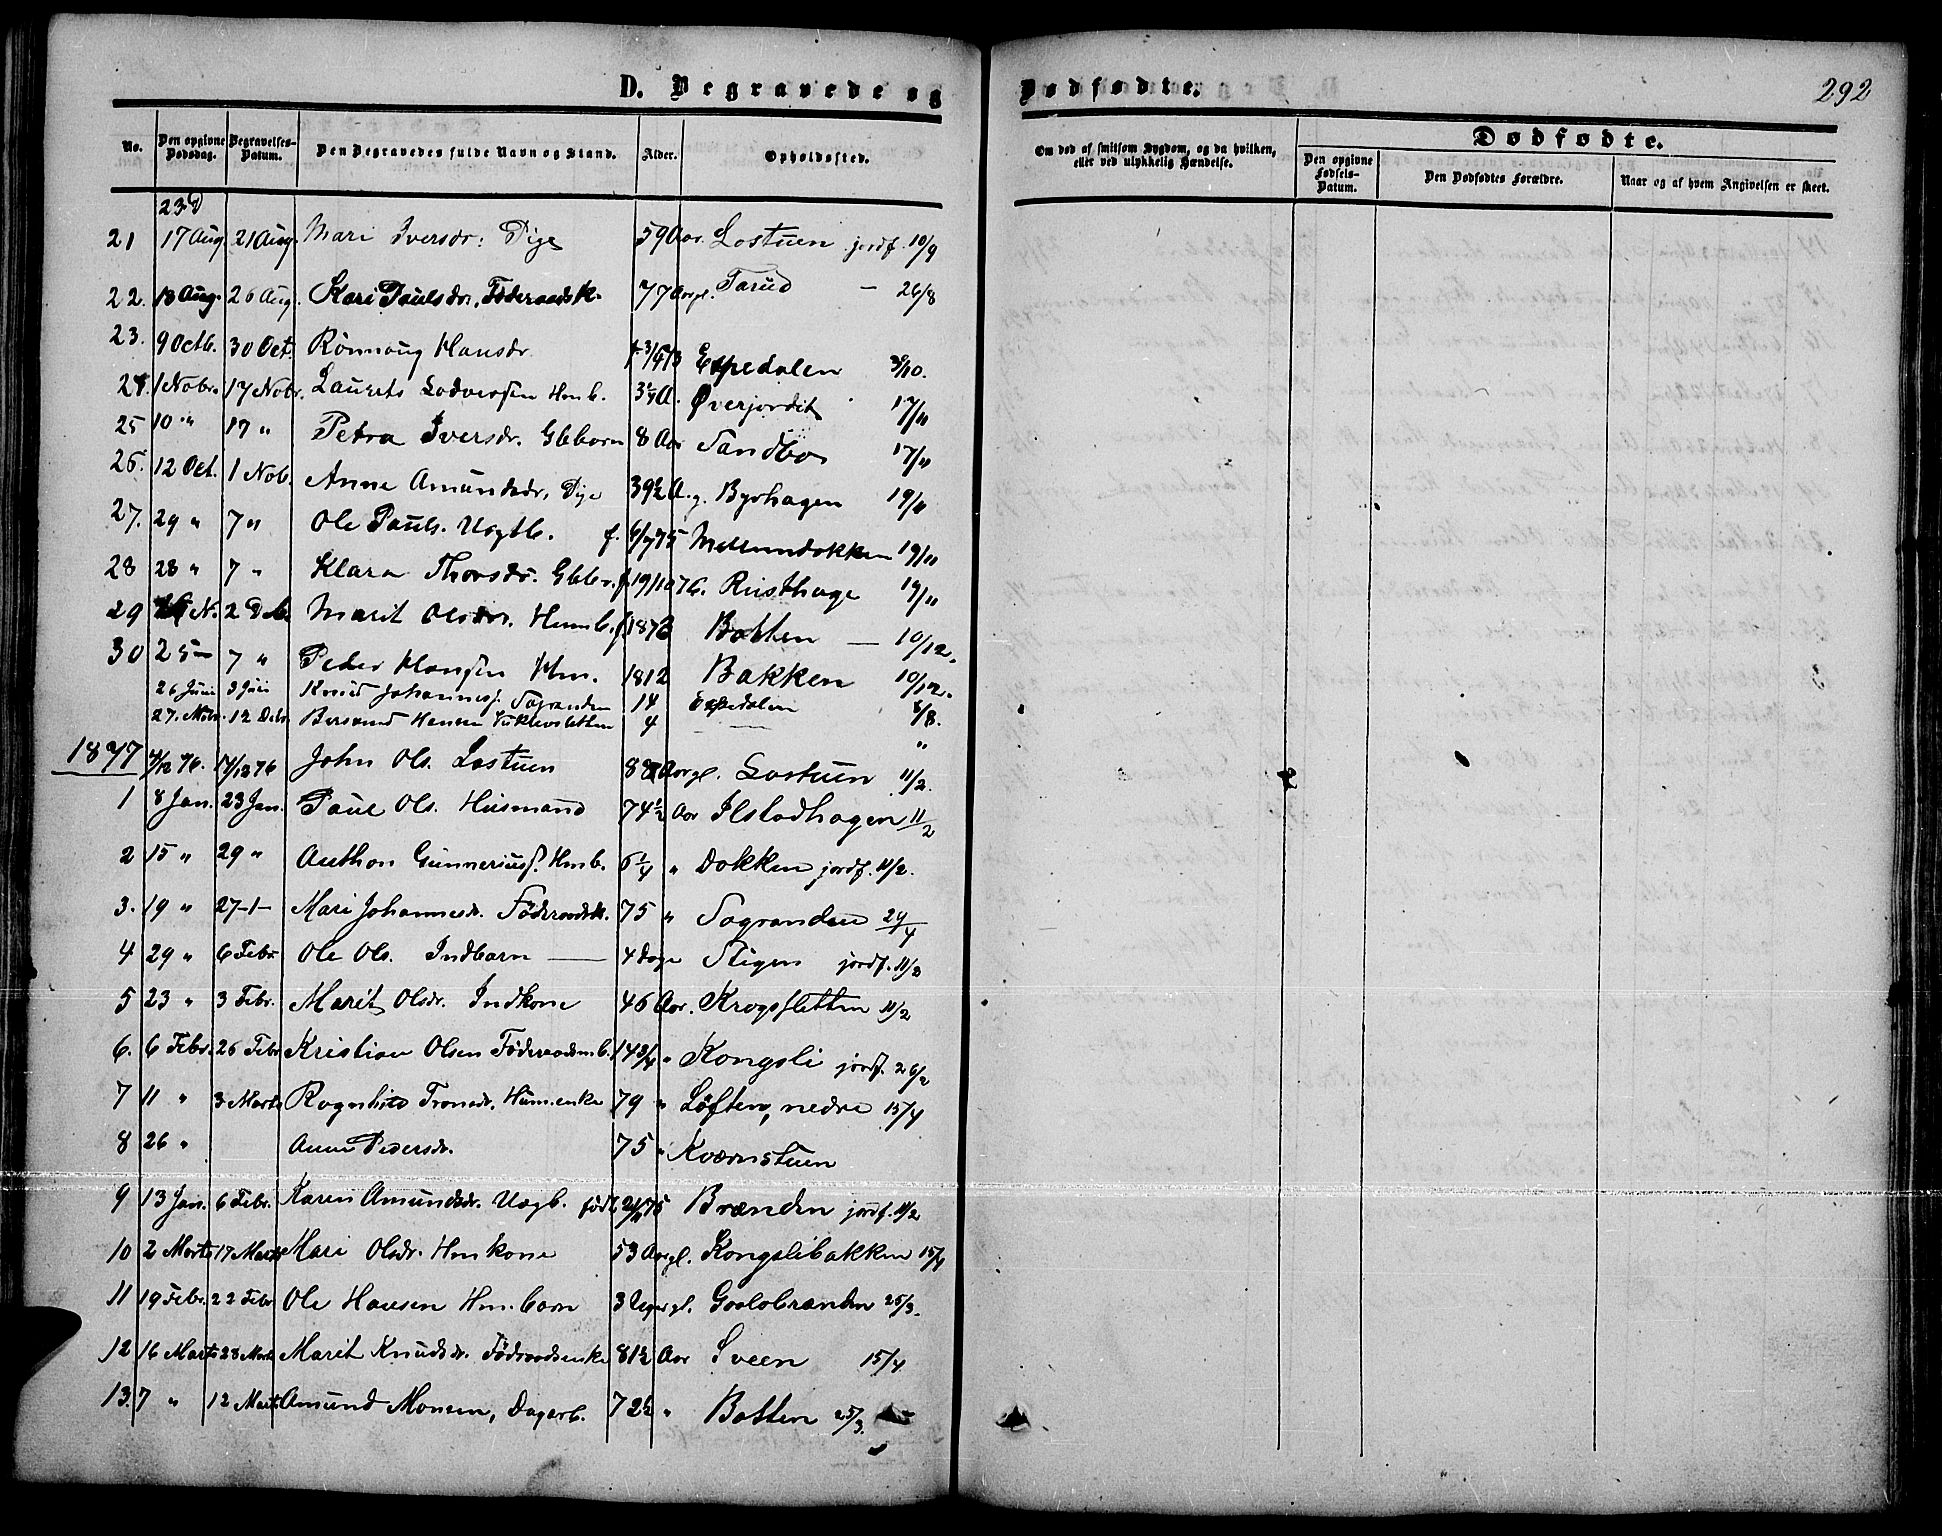 D. Begravede og Dødfødte.
292
No. Den opgivne Dødsdag. Begravelses-Datum. Den Begravedes fulde Navn og Stand. Alder. Opholdssted. Om død af smitsom Sygdom, og da hvilken, eller ved ulykkelig Hændelse. Dødfødte.
Den opgivne Fødsels-Datum. Den Dødfødtes Forældre. Naar og af hvem Angivelsen er skeet.
21 17 Aug 21 Aug. Mari Iversdr. Pige 59 Aar. Lostuen jordf. 10/9
22. 18 Aug. 26 Aug. Kari Paulsdr. Föderaadsk. 77 Aargl. Tarud — 26/8
23. 9 Octb. 30 Oct. Rönnoug Hansdr. Espedalen 30/10.
24. 1 Nobr. 17 Nobr. Laurits Lodversen Hmb. 3 A. Øverjordit 17/11
25 10 " 17 " Petra Iversdr. Gbbarn 8 Aar Sandbo 17/11
26. 12 Oct. 1 Nob. Anne Amundsdr. Pige 39½ A. g. Byrhagen 19/11
27. 29 " 7 " Ole Pauls. Uægtb. f. 6/7 75 Mellemdokken 19/11
28 28 " 7 " Klara Thorsdr. Gbbr. f. 19/10 76. Rusthage 19/11
29 N. 2 Deb. Marit Olsdr. Humb. f. 1876 Botten — 10/12.
30 25 — 7 " Peder Hansen Hm. 1812 Bakken 10/12.
26 Juni 3 Juli Knud Johannes. Sogranden 14 Espedalen 6/8.
27. Nobr. 12 Debr. Hansen 4 — "
1877 4/12 76. 14/12 76 John Ols. Lostuen 88 Aargl. Lostuen 11/2.
1 8 Jan. 23 Jan. Paul Ols. Husmand 74½ Aar Ilstadhagen 11/2
2 15 " 29 " Anthon Gunneriusf. Hmb. 6¼ " Dokken jordf. 11/2.
3. 19 " 27-1- Mari Johannesdr. Föderaadsk. 75 " Sogranden 29/4
4 29 " 6 Febr Ole Ols. Indbarn — 4 Dage Stigen jordf. 11/2
5 23 " 3 Febr. Marit Olsdr. Indkone 46 Aar. Krogsletten 11/2
6. 6 Febr. 26 Febr Kristian Olsen Föderaadsmb. 14 3/4 " Kongsli jordf. 26/2
7 11 " 3 Marts Ragnhild Tronsdr. Humenke 79 " Löften, nedre 15/4
8 26 " Anne Pedersdr. 75 " Kværnstuen
9 13 Jan. 6 Febr. Karen Amundsdr. Uægb. född 21/11 75 Brænden jordf. 11/2
10 2 Marts 17 Marts Mari Olsdr. Hmkone 53 Aargl. Kongslibakken 15/4
11 19 Febr. 22 Febr Ole Hansen Hm. barn 3 Uger gl. Goolobrænden 25/3.
12 16 Marts 28 Marts Marit Knudsdr. Föderaadsenke 81½ Aar Sveen 15/4
13. 7 " 12 Marts Amund Monsen, Dagarb. 72½ " Botten 25/3.